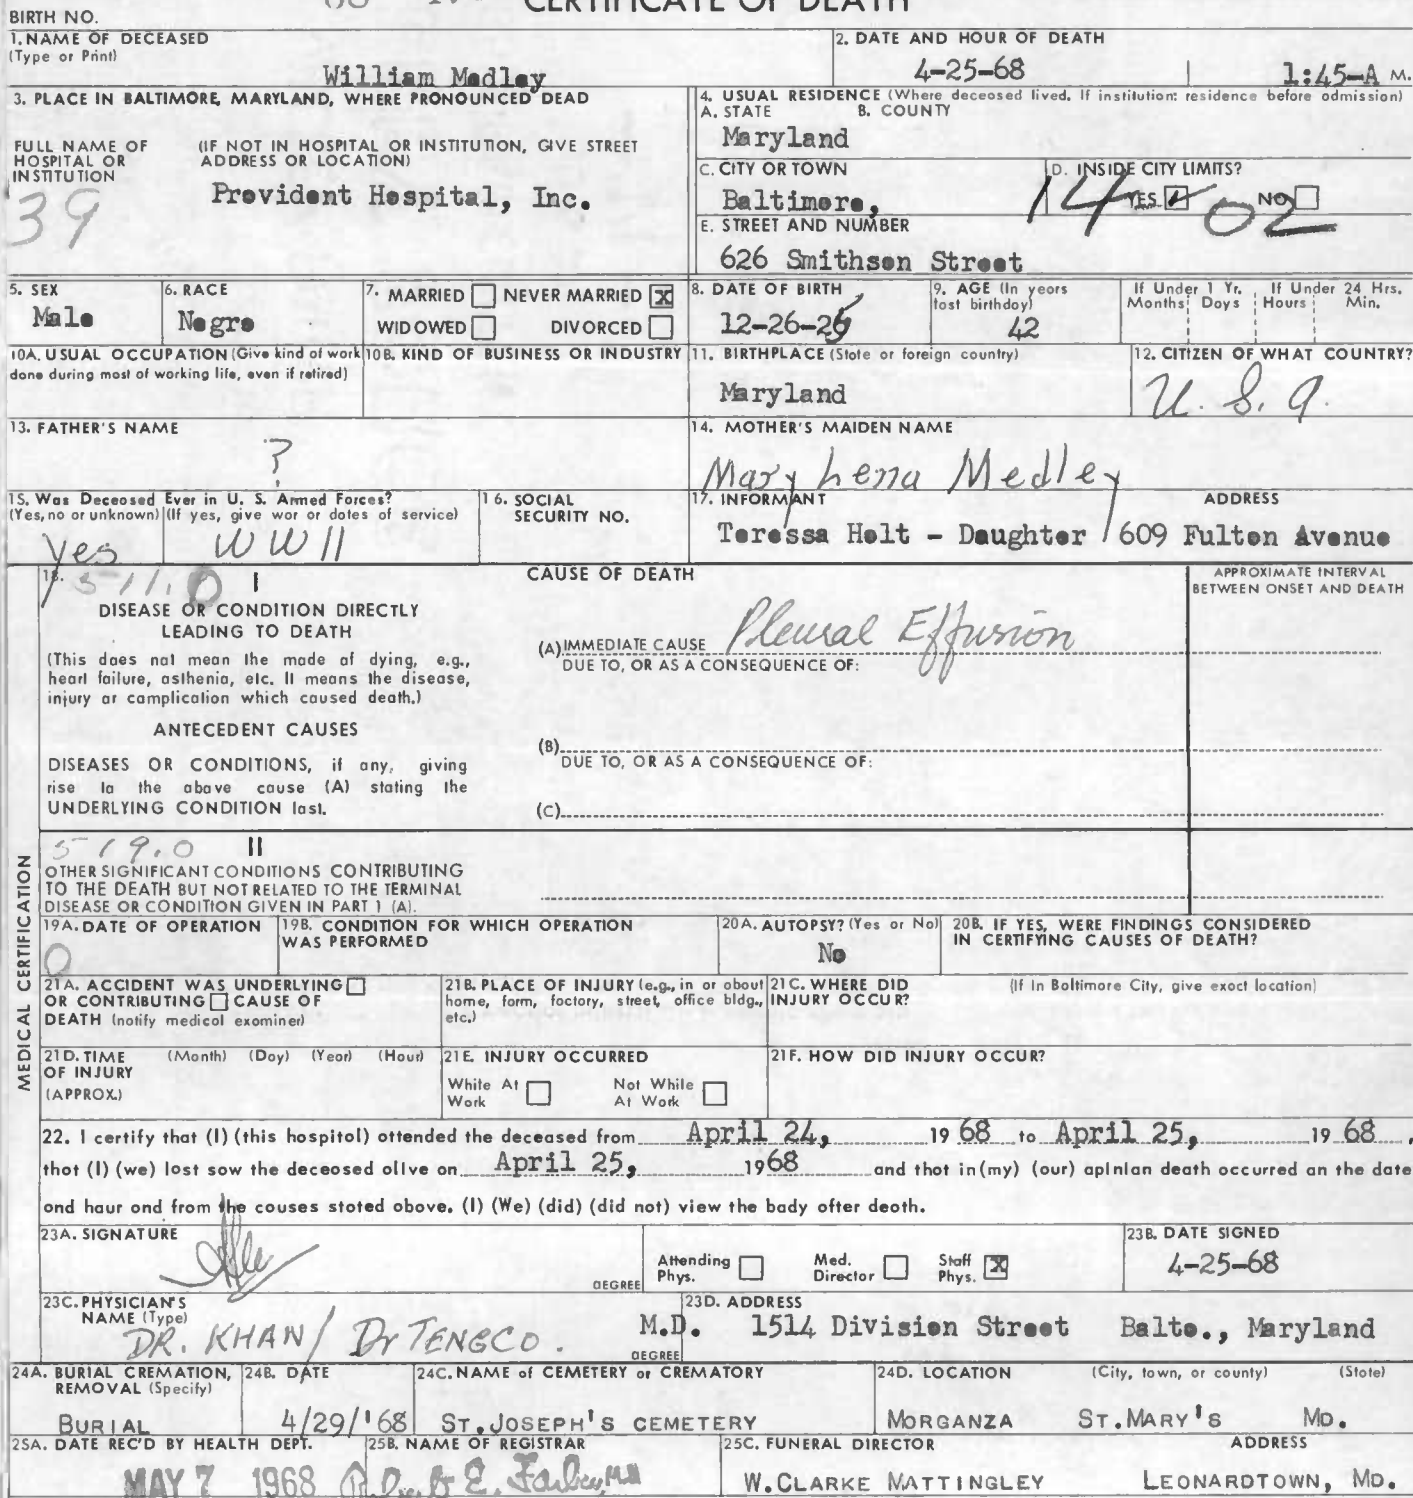 CERTIFICATE OF DEATH
BIRTH NO.
1. NAME OF DECEASED
(Type or Print)
William Medley
2. DATE AND HOUR OF DEATH
4-25-68 1:45-A M.
3. PLACE IN BALTIMORE, MARYLAND, WHERE PRONOUNCED DEAD
FULL NAME OF HOSPITAL OR INSTITUTION
(IF NOT IN HOSPITAL OR INSTITUTION, GIVE STREET ADDRESS OR LOCATION)
39
Provident Hospital, Inc.
4. USUAL RESIDENCE (Where deceased lived. If institution: residence before admission)
A. STATE B. COUNTY
Maryland
C. CITY OR TOWN
Baltimore,
D. INSIDE CITY LIMITS?
YES NO
14 02
E. STREET AND NUMBER
626 Smithson Street
5. SEX
Male
6. RACE
Negro
7. MARRIED NEVER MARRIED X
WIDOWED DIVORCED
8. DATE OF BIRTH
12-26-25
9. AGE (In years last birthday)
42
If Under 1 Yr. Months Days
If Under 24 Hrs. Hours Min.
10A. USUAL OCCUPATION (Give kind of work done during most of working life, even if retired)
10B. KIND OF BUSINESS OR INDUSTRY
11. BIRTHPLACE (State or foreign country)
Maryland
12. CITIZEN OF WHAT COUNTRY?
U. S. A.
13. FATHER'S NAME
?
14. MOTHER'S MAIDEN NAME
Mary Lena Medley
15. Was Deceased Ever in U. S. Armed Forces?
(Yes, no or unknown) (If yes, give war or dates of service)
Yes WWII
16. SOCIAL SECURITY NO.
17. INFORMANT ADDRESS
Teressa Holt - Daughter 1609 Fulton Avenue
18. 511.0 I
CAUSE OF DEATH
APPROXIMATE INTERVAL BETWEEN ONSET AND DEATH
DISEASE OR CONDITION DIRECTLY
LEADING TO DEATH
(This does not mean the mode of dying, e.g.,
heart failure, asthenia, etc. It means the disease,
injury or complication which caused death.)
(A) IMMEDIATE CAUSE Pleural Effusion
DUE TO, OR AS A CONSEQUENCE OF:
ANTECEDENT CAUSES
DISEASES OR CONDITIONS, if any, giving
rise to the above cause (A) stating the
UNDERLYING CONDITION last.
(B)
DUE TO, OR AS A CONSEQUENCE OF:
(C)
MEDICAL CERTIFICATION
519.0 II
OTHER SIGNIFICANT CONDITIONS CONTRIBUTING
TO THE DEATH BUT NOT RELATED TO THE TERMINAL
DISEASE OR CONDITION GIVEN IN PART 1 (A).
19A. DATE OF OPERATION
0
19B. CONDITION FOR WHICH OPERATION WAS PERFORMED
20A. AUTOPSY? (Yes or No)
No
20B. IF YES, WERE FINDINGS CONSIDERED IN CERTIFYING CAUSES OF DEATH?
21A. ACCIDENT WAS UNDERLYING
OR CONTRIBUTING CAUSE OF
DEATH (notify medical examiner)
21B. PLACE OF INJURY (e.g., in or about home, farm, factory, street, office bldg., etc.)
21C. WHERE DID INJURY OCCUR?
(If in Baltimore City, give exact location)
21D. TIME OF INJURY (APPROX.)
(Month) (Day) (Year) (Hour)
21E. INJURY OCCURRED
While At Work Not While At Work
21F. HOW DID INJURY OCCUR?
22. I certify that (I) (this hospital) attended the deceased from April 24, 19 68 to April 25, 19 68,
that (I) (we) last saw the deceased alive on April 25, 1968 and that in (my) (our) opinion death occurred on the date
and hour and from the causes stated above. (I) (We) (did) (did not) view the body after death.
23A. SIGNATURE
DEGREE
Attending Phys. Med. Director Staff Phys. X
23B. DATE SIGNED
4-25-68
23C. PHYSICIAN'S NAME (Type)
DR. KHAN / Dr TENGCO. M.D.
DEGREE
23D. ADDRESS
1514 Division Street Balto., Maryland
24A. BURIAL CREMATION, REMOVAL (Specify)
BURIAL
24B. DATE
4/29/'68
24C. NAME of CEMETERY or CREMATORY
ST. JOSEPH'S CEMETERY
24D. LOCATION (City, town, or county) (State)
MORGANZA ST. MARY'S MD.
25A. DATE REC'D BY HEALTH DEPT.
MAY 7 1968
25B. NAME OF REGISTRAR
E. Farber, M.D.
25C. FUNERAL DIRECTOR ADDRESS
W. CLARKE MATTINGLEY LEONARDTOWN, MD.